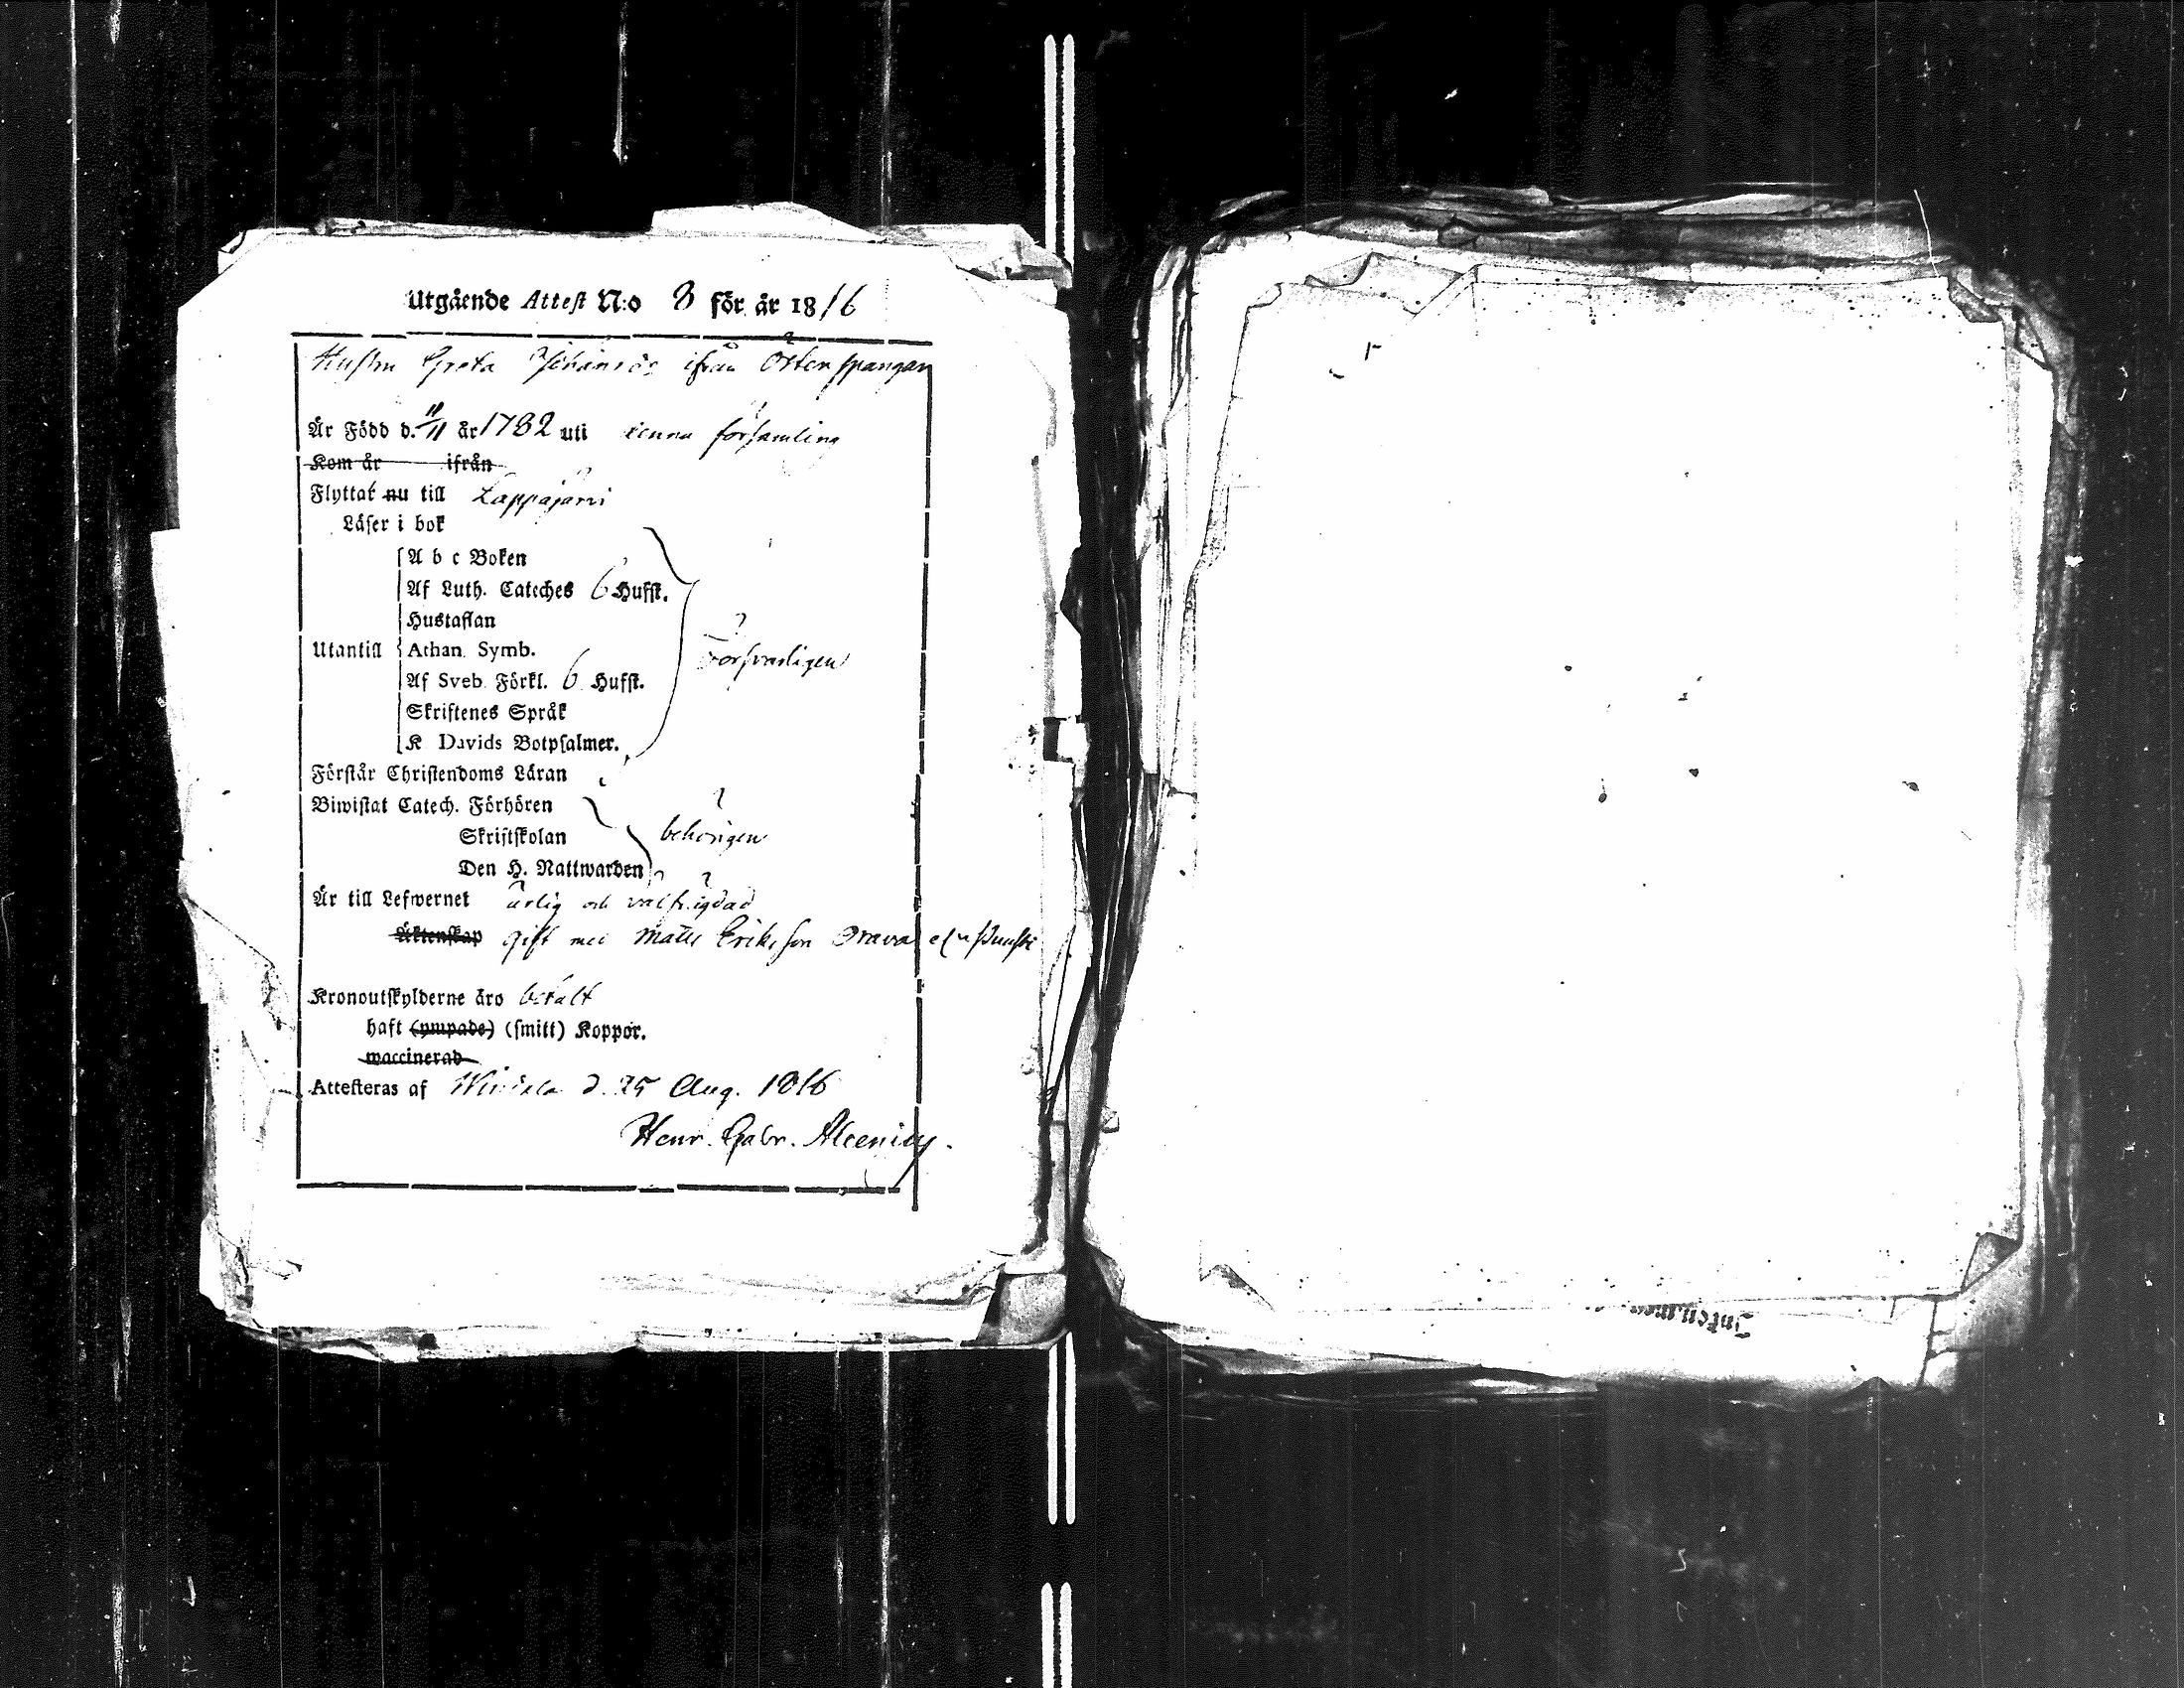 Utgående Attest N:o 8 för år 1816
Hustru Greta Johansdr ifrån Österspångar
Är Född d. 11/11 år 1782 uti denna församling
Kom år ifrån
Flyttat nu till Lappajärvi
Läser i bok
A b c Boken
Af Luth. Cateches 6 Hufst.
Hustaflan
Utantill Athan. Symb. Försvarligen
Af Sveb. Förkl. 6 Hufst.
Skriftenes Språk
K Davids Botpsalmer.
Förstår Christendoms Läran
Biwistat Catech. Förhören
Skriftskolan behörigen
Den H. Nattwarden
Är till Lefwernet ärlig och välfrägdad
Äktenskap gift med Matts Eriksson
Kronoutskylderne äro betalt
haft (ympade) (smitt) Koppor.
waccinerad
Attesteras af Windala d. 25 Aug. 1816
Henr. Gabr. Alcenius.